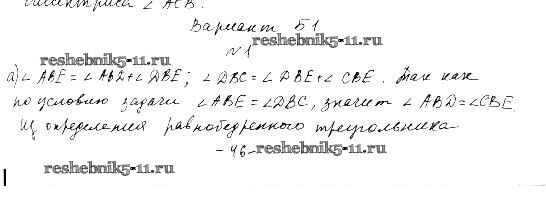 биссектриса ∠ ACB.
Вариант Б1
reshebnik5-11.ru
№1
reshebnik5-11.ru
а) ∠ ABE = ∠ ABD + ∠ DBE; ∠ DBC = ∠ DBE + ∠ CBE. Так как
по условию задачи ∠ ABE = ∠ DBC, значит ∠ ABD = ∠ CBE.
Из определения равнобедренного треугольника
- 46 -
reshebnik5-11.ru
reshebnik5-11.ru